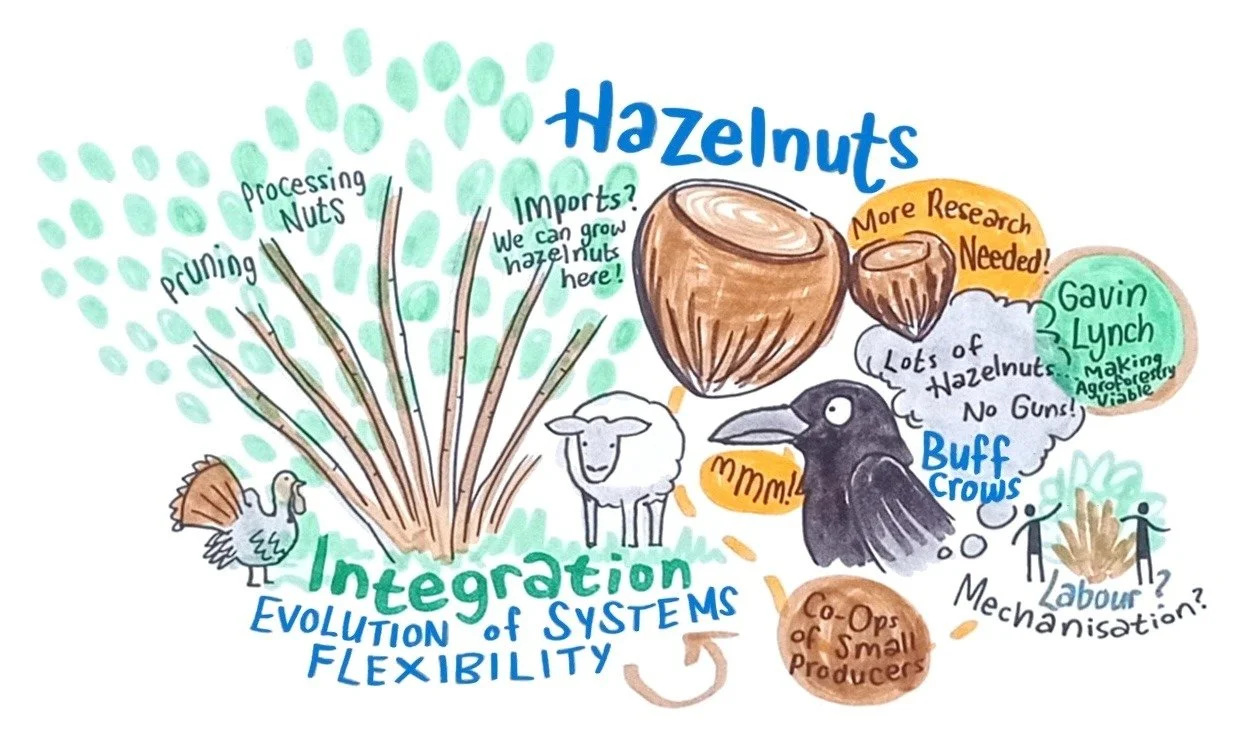 Hazelnuts
Processing
Nuts
Pruning
Imports?
We can grow
hazelnuts
here!
More Research
Needed!
Gavin
Lynch
Making
Agroforestry
Viable
Lots of
Hazelnuts...
No Guns!
Buff
Crows
mmm!
Integration
EVOLUTION of SYSTEMS
FLEXIBILITY
Co-Ops
of Small
Producers
Labour?
Mechanisation?